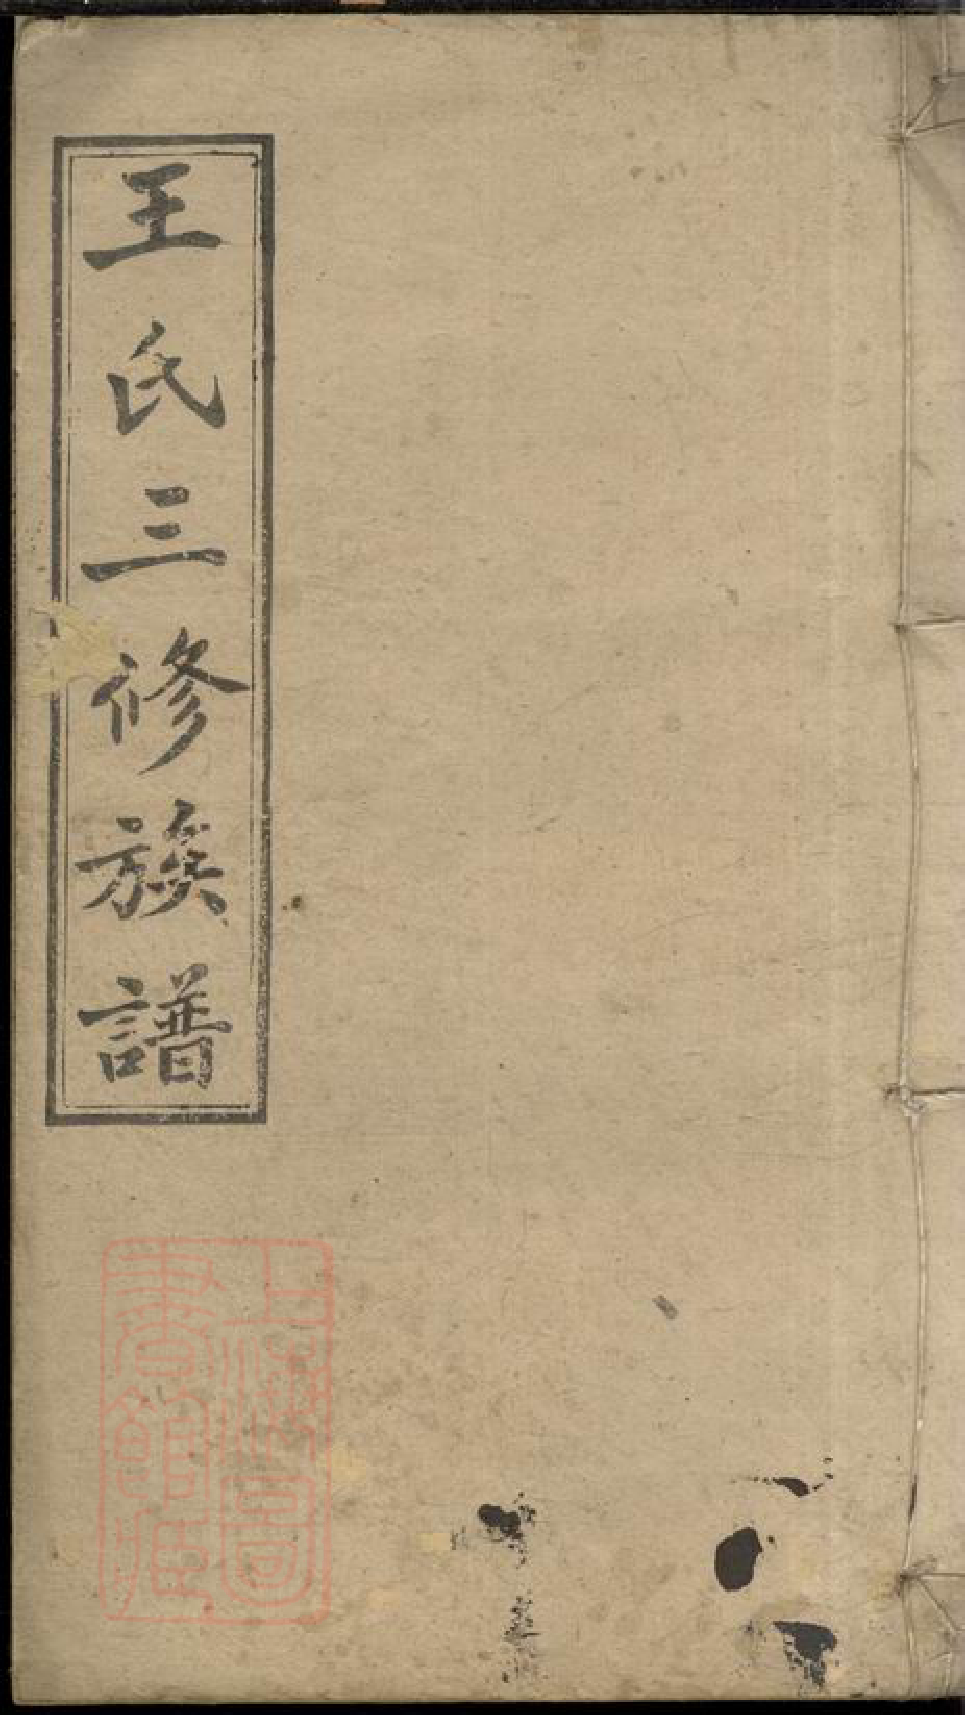 王氏三修族譜
上海圖
書館藏